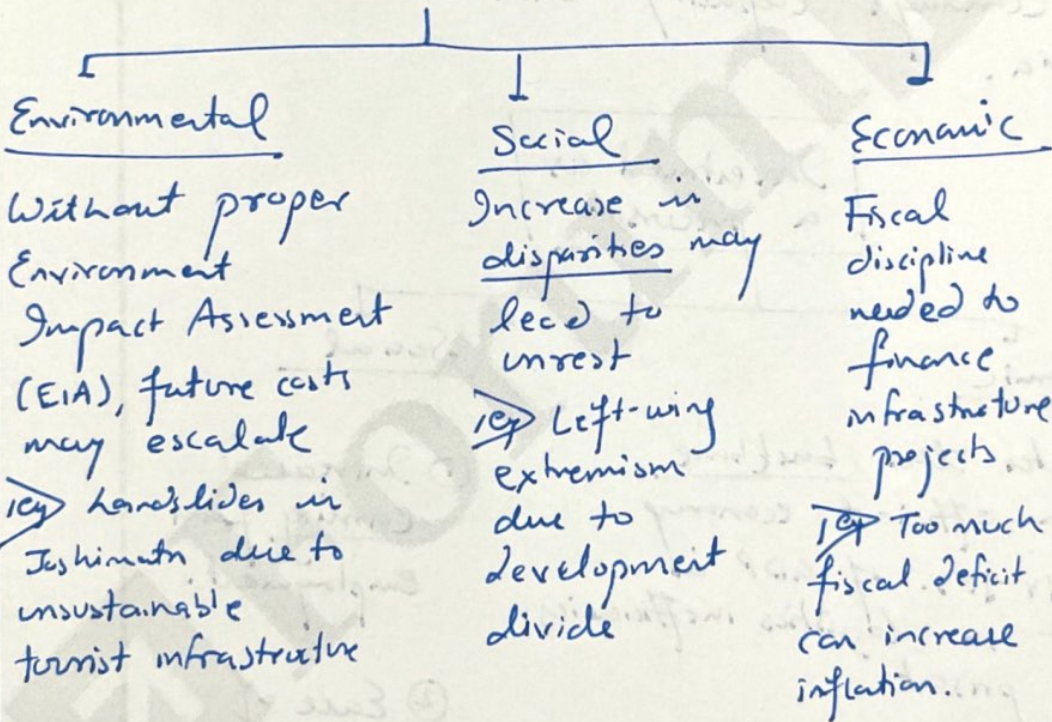 Environmental
Without proper
Environment
Impact Assessment
(EIA), future costs
may escalate
eg> Landslides in
Joshimath due to
unsustainable
tourist infrastructure
Social
Increase in
disparities may
lead to
unrest
eg> Left-wing
extremism
due to
development
divide
Economic
Fiscal
discipline
needed to
finance
infrastructure
projects
eg> Too much
fiscal deficit
can increase
inflation.